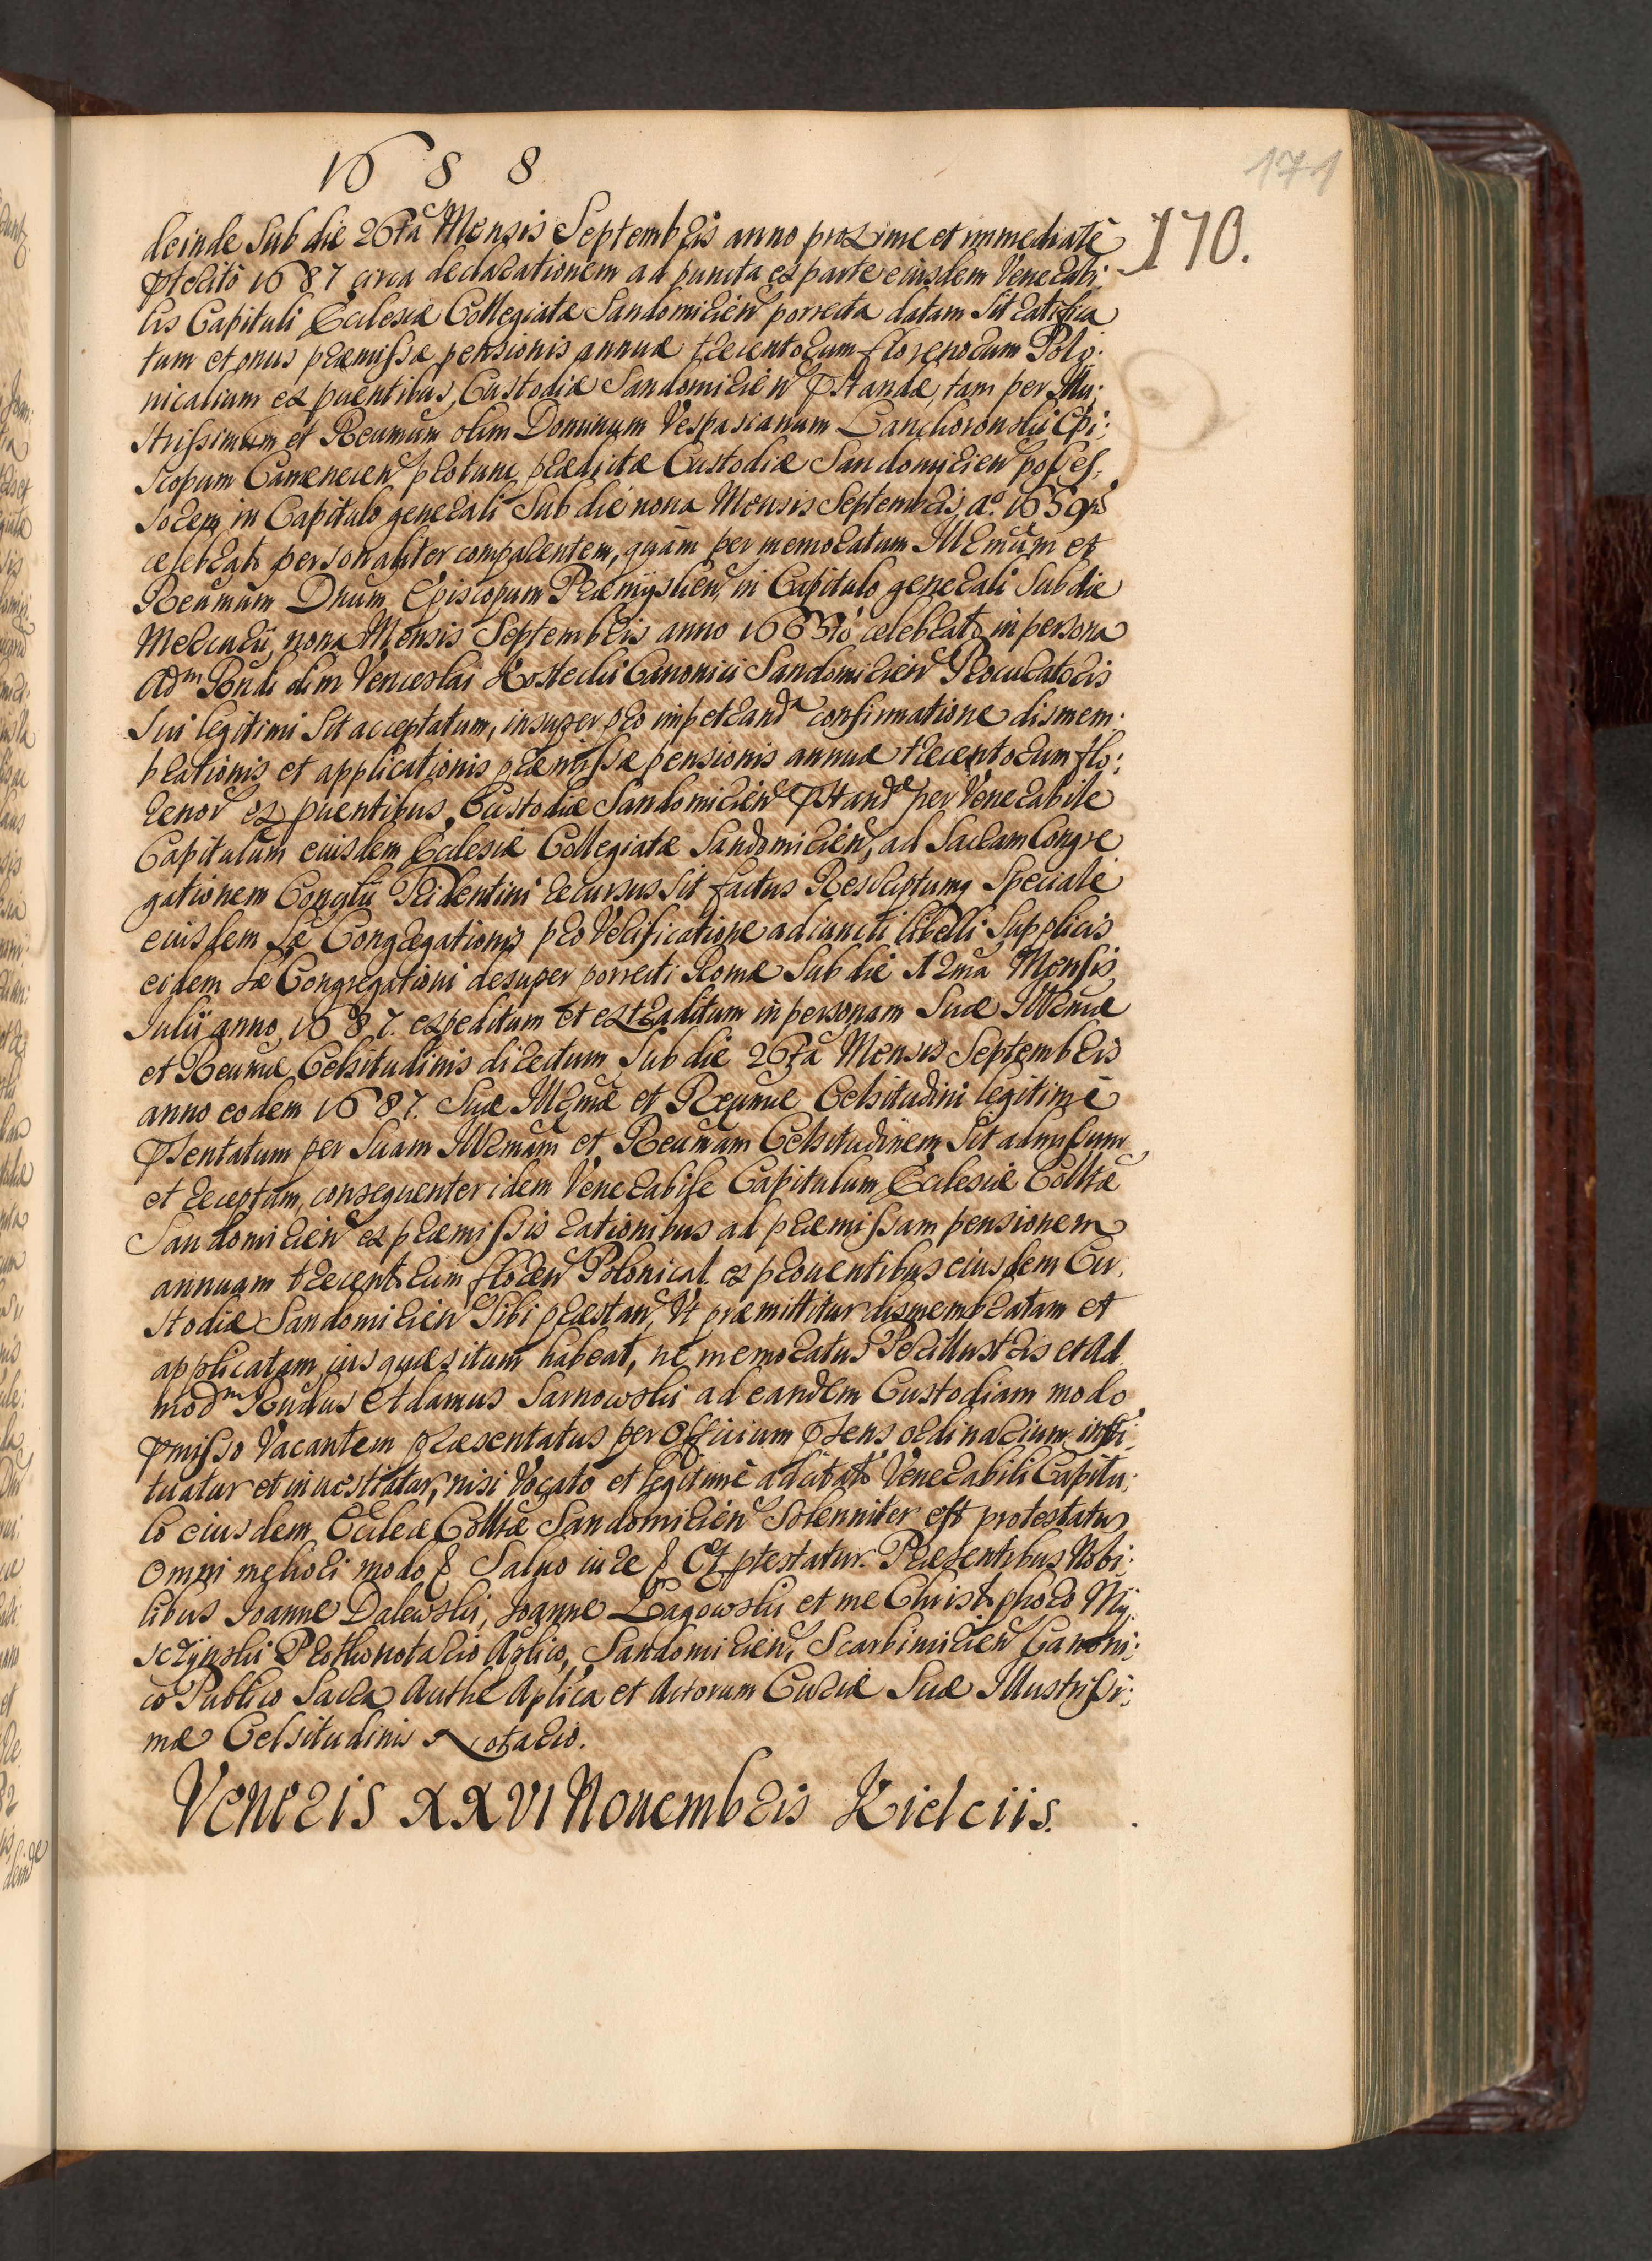 1688
171
170.
deinde Sub die 26ta Mensis Septembris anno proxime et immediatè
pterito 1687 circa declarationem ad puncta ex parte eiusdem Venerabi:
lis Capituli Ecclesiæ Collegiatæ Sandomirien porrecta datam Sit ratifica
tum et onus præmissæ pensionis annuæ trecentorum florenorum Polo:
nicalium ex puentibus Custodiæ Sandomirien pstandæ, tam per Illu:
strissimum et Reumum olim Dominum Vespasianum Lanckoronski Epi:
scopum Camenecen protunc prædictæ Custodiæ Sandomirien posses:
sorem in Capitulo generali Sub die nona Mensis Septembris, ao. 1659no
celebrato personaliter comparentem, quàm per memoratum Illrmum et
Reumum Dnum Episcopum Præmyslien, in Capitulo generali Sub die
Mercurij, nona Mensis Septembris anno 1665to celebrato in persona
Adm Rndi olim Venceslai Kostecki Canonici Sandomirien Procuratoris
Sui legitimi Sit acceptatum, insuper pro impetranda confirmatione dismem:
brationis et applicationis præmissæ pensionis annuæ trecentorum flo:
renor ex puentibus Custodiæ Sandomirien pstandæ per Venerabile
Capitulum eiusdem Ecclesiæ Collegiatæ Sandomirien, ad Sacram Congre
gationem Conciii Tridentini recursus Sit factus Rescriptumq Speciale
eiusdem Sæ Congregationis pro Verificatione adiuncti libelli Supplicis
eidem Sæ Congregationi desuper porrecti Romæ Sub die 12ma Mensis
Julii anno 1687. expeditum et extraditum in personam Suæ Illrmæ
et Reumæ Celsitudinis directum Sub die 26ta Mensis Septembris
anno eodem 1687. Suæ Illrmæ et Reumæ Celsitudini legitimè
psentatum per Suam Illrmam et Reumam Celsitudinem Sit admissum
et receptum, consequenter idem Venerabile Capitulum Ecclesiæ Colltæ
Sandomirien ex præmissis rationibus ad præmissam pensionem
annuam trecentorum floren Polonical. ex prouentibus eiusdem Cu:
stodiæ Sandomirien Sibi præstan, Vt præmittitur dismembratam et
applicatam ius quæsitum habeat, ne memoratus Perillustris et Ad
modm Rndus Adamus Sarnowski ad eandem Custodiam modo
pmisso Vacantem præsentatus per Officium psens ordinarium insti:
tuatur et inuestiatur, nisi Vocato et legitimè adcitato Venerabili Capitu:
lo eiusdem Ecclæ Colltæ Sandomirien Solenniter est protestatus
omni meliori modo & Saluo iure & Et ptestatur. Præsentibus Nobi:
libus Joanne Dalewski, Joanne Łagowski et me Christophoro My:
sczynski Prothonotario Aplico, Sandomirien, Scarbimirien Canoni:
co Publico Sacra Authe Aplica et Actorum Curiæ Suæ Illustrissi:
mæ Celsitudinis Notario.
Veneris XXVI Nouembris Kielciis.